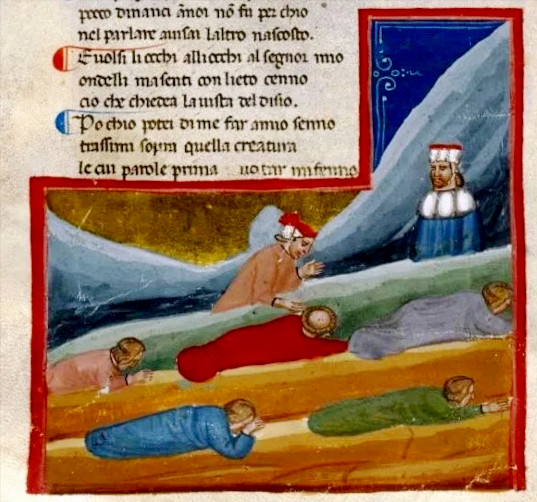 poco dinanci ānoi nō fu per chio
nel parlare auisai laltro nascosto.
Euolsi li occhi alliocchi al segnor mio
ondelli masenti con lieto cenno
cio che chiedea la uista del disio.
Po chio potei di me far amio senno
trassimi sopra quella creatura
le cui parole prima tar mi fenno